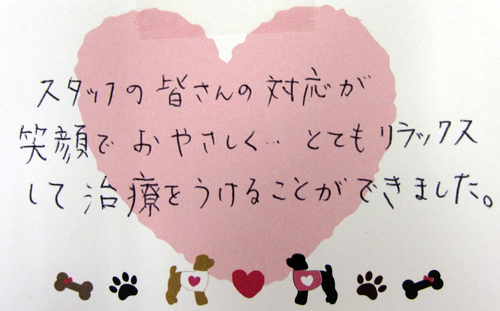 スタッフの皆さんの対応が
笑顔でおやさしく… とてもリラックス
して治療をうけることができました。